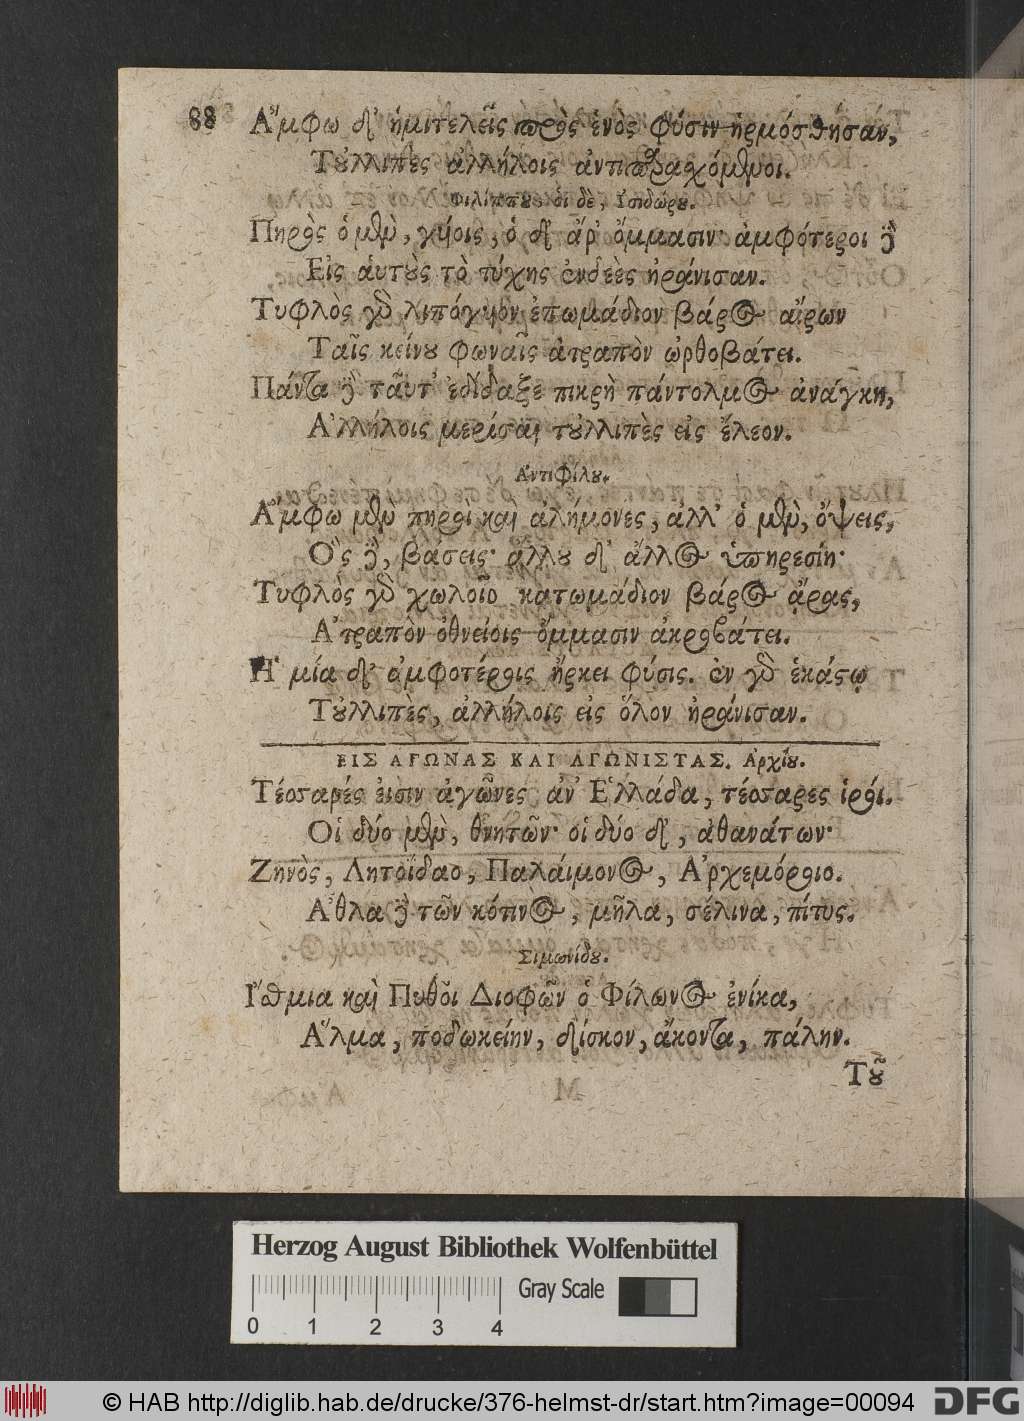 88 Ἄμφω δ' ἡμιτελεῖς πρὸς ἑνὸς φύσιν ἡρμόσθησαν,
Τοὐλλιπὲς ἀλλήλοις ἀντιπαρασχόμενοι.
Φιλίππου· οἱ δὲ, Ἰσιδώρου.
Πηρὸς ὁ μὲν, γυίοις, ὁ δ' ἄρ' ὄμμασιν· ἀμφότεροι δὲ
Εἰς αὑτοὺς τὸ τύχης ἐνδεὲς ἠράνισαν.
Τυφλὸς γὰρ λιπόγυιον ἐπωμάδιον βάρος αἴρων
Ταῖς κείνου φωναῖς ἀτραπὸν ὠρθοβάτει.
Πάντα δὲ ταῦτ' ἐδίδαξε πικρὴ πάντολμος ἀνάγκη,
Ἀλλήλοις μερίσαι τοὐλλιπὲς εἰς ἔλεον.
Ἀντιφίλου.
Ἄμφω μὲν πηροὶ καὶ ἀλήμονες, ἀλλ' ὁ μὲν, ὄψεις,
Ὃς δὲ, βάσεις· ἄλλου δ' ἄλλος ὑπηρεσίη·
Τυφλὸς γὰρ χωλοῖο κατωμάδιον βάρος ἄρας,
Ἀτραπὸν ὀθνείοις ὄμμασιν ἀκροβάτει.
Ἡ μία δ' ἀμφοτέροις ἤρκει φύσις. ἐν γὰρ ἑκάστῳ
Τοὐλλιπὲς, ἀλλήλοις εἰς ὅλον ἠράνισαν.
ΕΙΣ ΑΓΩΝΑΣ ΚΑΙ ΑΓΩΝΙΣΤΑΣ. Ἀρχίου.
Τέσσαρές εἰσιν ἀγῶνες ἀν' Ἑλλάδα, τέσσαρες ἱροί.
Οἱ δύο μὲν, θνητῶν· οἱ δύο δ', ἀθανάτων·
Ζηνὸς, Λητοΐδαο, Παλαίμονος, Ἀρχεμόροιο.
Ἆθλα δὲ τῶν κότινος, μῆλα, σέλινα, πίτυς.
Σιμωνίδου.
Ἴσθμια καὶ Πυθοῖ Διοφῶν ὁ Φίλωνος ἐνίκα,
Ἅλμα, ποδωκείην, δίσκον, ἄκοντα, πάλην.
Τοῦ
Herzog August Bibliothek Wolfenbüttel
Gray Scale
0 1 2 3 4
© HAB http://diglib.hab.de/drucke/376-helmst-dr/start.htm?image=00094 DFG